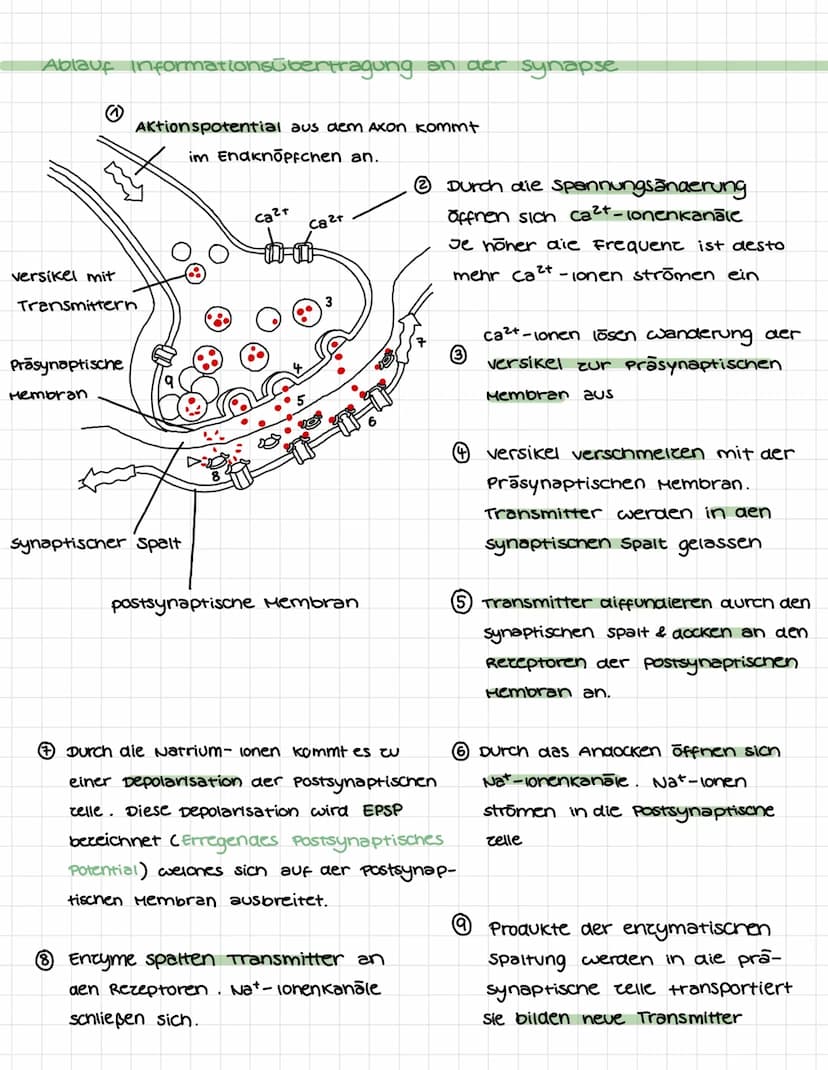 Ablauf Informationsübertragung an der Synapse
① Aktionspotential aus dem Axon kommt
im Endknöpfchen an.
② Durch die Spannungsänderung
öffnen sich Ca²⁺-Ionenkanäle
Je höher die Frequenz ist desto
mehr Ca²⁺-Ionen strömen ein
Ca²⁺
Ca²⁺
Versikel mit
Transmittern
3
7
Präsynaptische
Membran
9
4
5
6
8
Synaptischer Spalt
postsynaptische Membran
③ Ca²⁺-Ionen lösen Wanderung der
Versikel zur Präsynaptischen
Membran aus
④ Versikel verschmelzen mit der
Präsynaptischen Membran.
Transmitter werden in den
synaptischen Spalt gelassen
⑤ Transmitter diffundieren durch den
synaptischen Spalt & docken an den
Rezeptoren der Postsynaptischen
Membran an.
⑥ Durch das Andocken öffnen sich
Na⁺-Ionenkanäle. Na⁺-Ionen
strömen in die Postsynaptische
Zelle
⑦ Durch die Natrium-Ionen kommt es zu
einer Depolarisation der Postsynaptischen
Zelle. Diese Depolarisation wird EPSP
bezeichnet (Erregendes Postsynaptisches
Potential) welches sich auf der Postsynap-
tischen Membran ausbreitet.
⑧ Enzyme spalten Transmitter an
den Rezeptoren. Na⁺-Ionenkanäle
schließen sich.
⑨ Produkte der enzymatischen
Spaltung werden in die prä-
synaptische Zelle transportiert
Sie bilden neue Transmitter